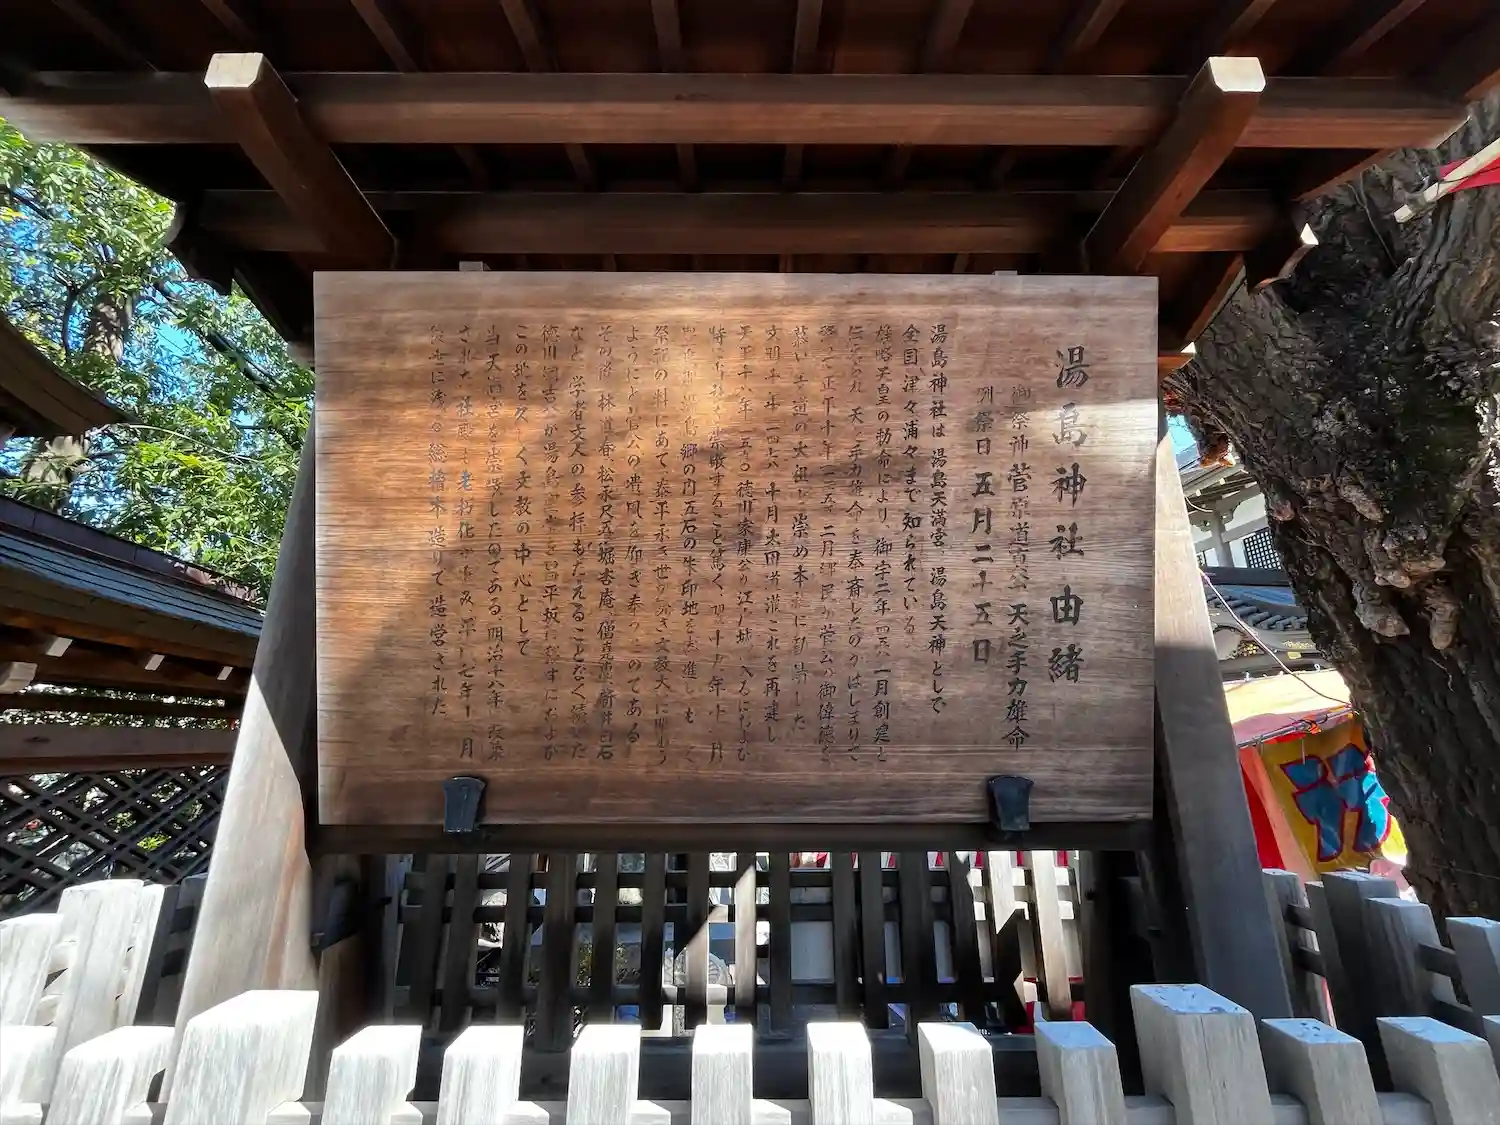 湯島神社由緒
御祭神 菅原道真公 天之手力雄命
例祭日 五月二十五日
湯島神社は 湯島天満宮、湯島天神として
全国、津々浦々まで知られている。
雄略天皇の勅命により、御宇二年 四五八 一月創建と
伝えられ 天之手力雄命を奉斎したのがはじまりで
正平十年 一三五五 二月郷民が菅公の御偉徳を
慕い 文道の大祖と崇め本社に勧請した
文明十年 一四七八 十月 太田道灌これを再建し
天正十八年 一五九〇 徳川家康公が江戸城に入るにおよび
特に当社を崇敬すること篤く 翌十九年十一月
湯島郷の内五石の朱印地を寄進し もって
祭祀の料にあて 泰平永き世が続き 文教大いに賑わう
ようにと 菅公の遺風を仰ぎ奉ったのである
その後 林道春 松永尺五 堀杏庵 僧堯恵 新井白石
など 学者文人の参拝もたえることなく続いた
徳川綱吉公が湯島聖堂を昌平坂に移すにおよび
この地を久しく文教の中心として
当天満宮を崇敬したのである。明治十八年 改築
された 社殿も老朽化
後世に残る総檜木造りで造営された